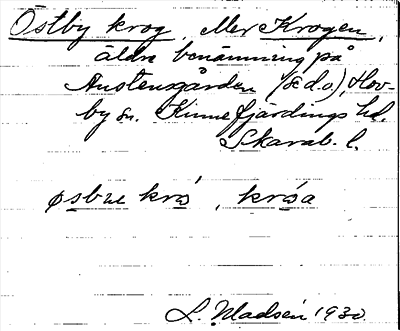 Östby krog, eller Krogen,
äldre benämning på
Austensgården (se d.o.), Hov-
by sn. Kinnefjärdings hd.
Skarab. l.
øsbue krós, krósa
L. Madsén 1930